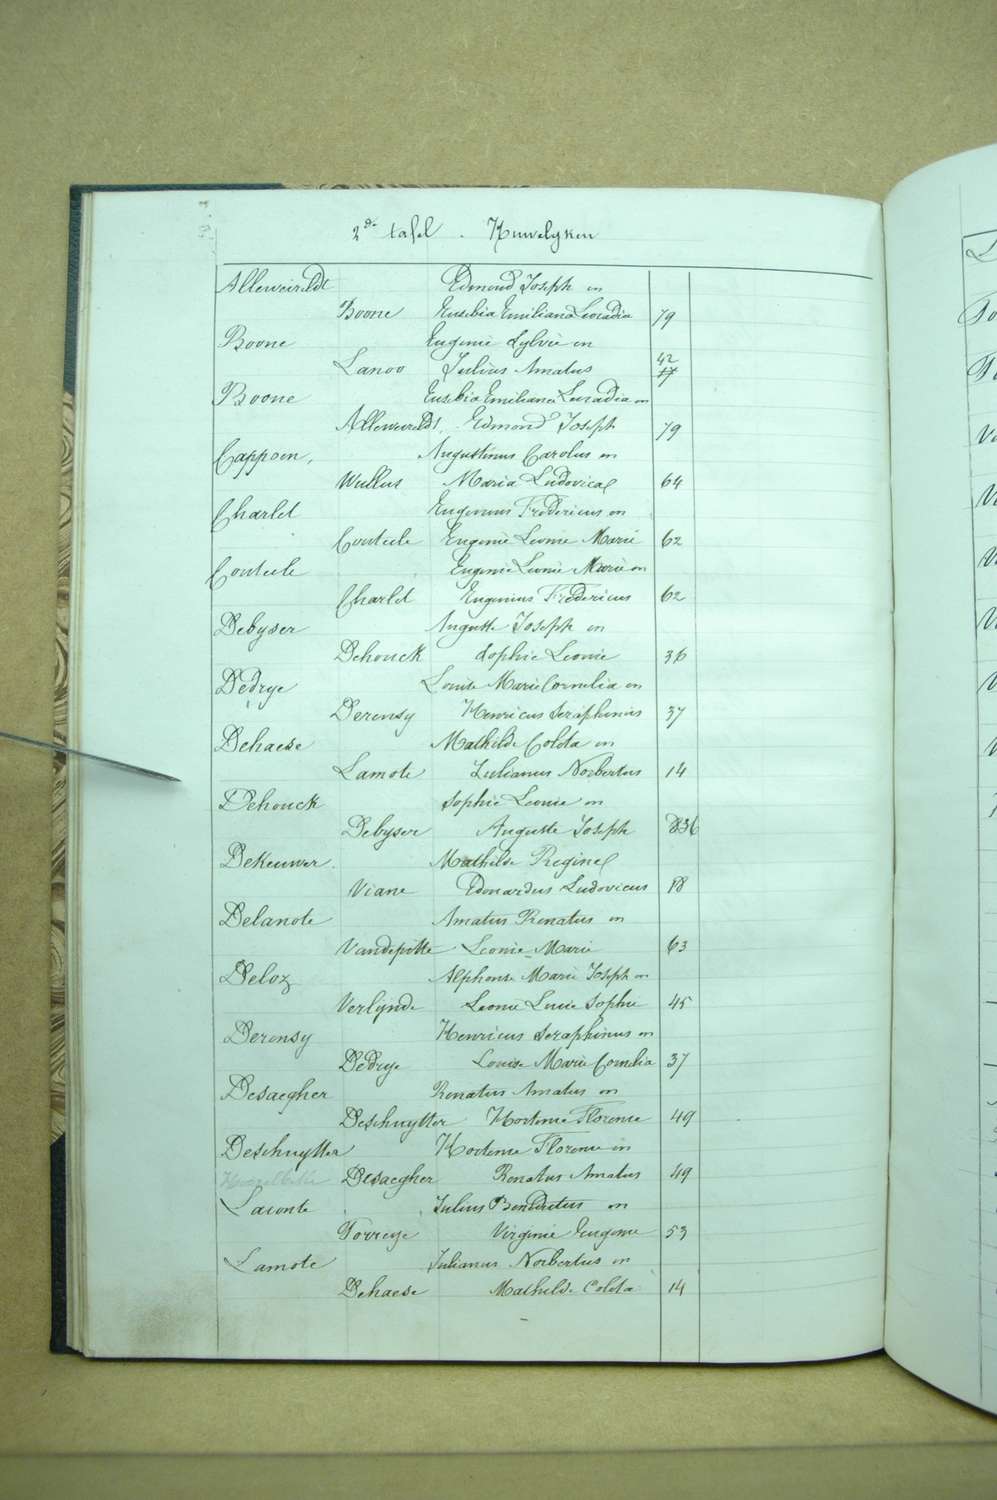 2de tafel . Huwelyken
Alleweireldt Edmond Joseph en
Boone Eusebia Emiliana Leocadia 79
Boone Eugenie Sylvie en
Lanoo Julius Amatus 42
Boone Eusebia Emiliana Leocadia en
Alleweireldt Edmond Joseph 79
Cappoen, Augustinus Carolus en
Wullus Maria Ludovica 64
Charlet Eugenius Fredericus en
Coutele Eugenie Leonie Marie 62
Coutele Eugenie Leonie Marie en
Charlet Eugenius Fredericus 62
Debyser Auguste Joseph en
Dehouck Sophie Leonie 36
Dedrye Louise Marie Cornelia en
Deronsy Henricus Seraphinus 37
Dehaese Mathilde Coleta en
Lamote Julianus Norbertus 14
Dehouck Sophie Leonie en
Debyser Auguste Joseph 36
Dekeuwer Mathilde Regine
Viane Edouardus Ludovicus 18
Delanote Amatus Renatus en
Vandepitte Leonie Marie 63
Deloz Alphonse Marie Joseph en
Verlynde Leonie Lucie Sophie 45
Deronsy Henricus Seraphinus en
Dedrye Louise Marie Cornelia 37
Desaegher Renatus Amatus en
Deschuytter Hortense Florence 49
Deschuytter Hortense Florence en
Desaegher Renatus Amatus 49
Laconte Julius Benedictus en
Torreye Virginie Eugenie 53
Lamote Julianus Norbertus en
Dehaese Mathilde Coleta 14